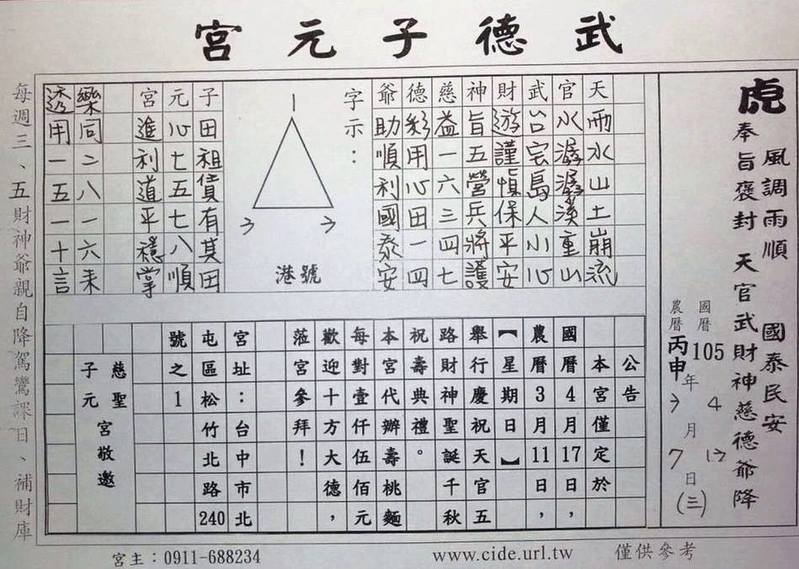 武德子元宮
虎 奉旨褒封 天官武財神慈德爺降
風調雨順 國泰民安
國曆 105 年 4 月 13 日 (三)
農曆 丙申 年 3 月 7 日
天雨水山土崩流
官水潺潺溪重山
武台宅島人小心
財遊謹慎保平安
神旨五營兵將護
慈益一六三四七
德彩用心田一四
爺助順利國泰安
字示：
1
3 3
港號
子田租賃有其田
元心七五七八順
宮進利道平穩掌
樂同二八一六來
透用一五一十言
公告
本宮僅定於
國曆4月17日，
農曆3月11日，
【星期日】
舉行慶祝天官五
路財神聖誕千秋
祝壽典禮。
本宮代辦壽桃麵
每對壹仟伍佰元
歡迎十方大德，
蒞宮參拜！
宮址：台中市北
屯區松竹北路240
號之1
慈聖
子元
宮敬邀
每週三、五財神爺親自降駕鸞課日、補財庫
宮主：0911-688234
www.cide.url.tw
僅供參考